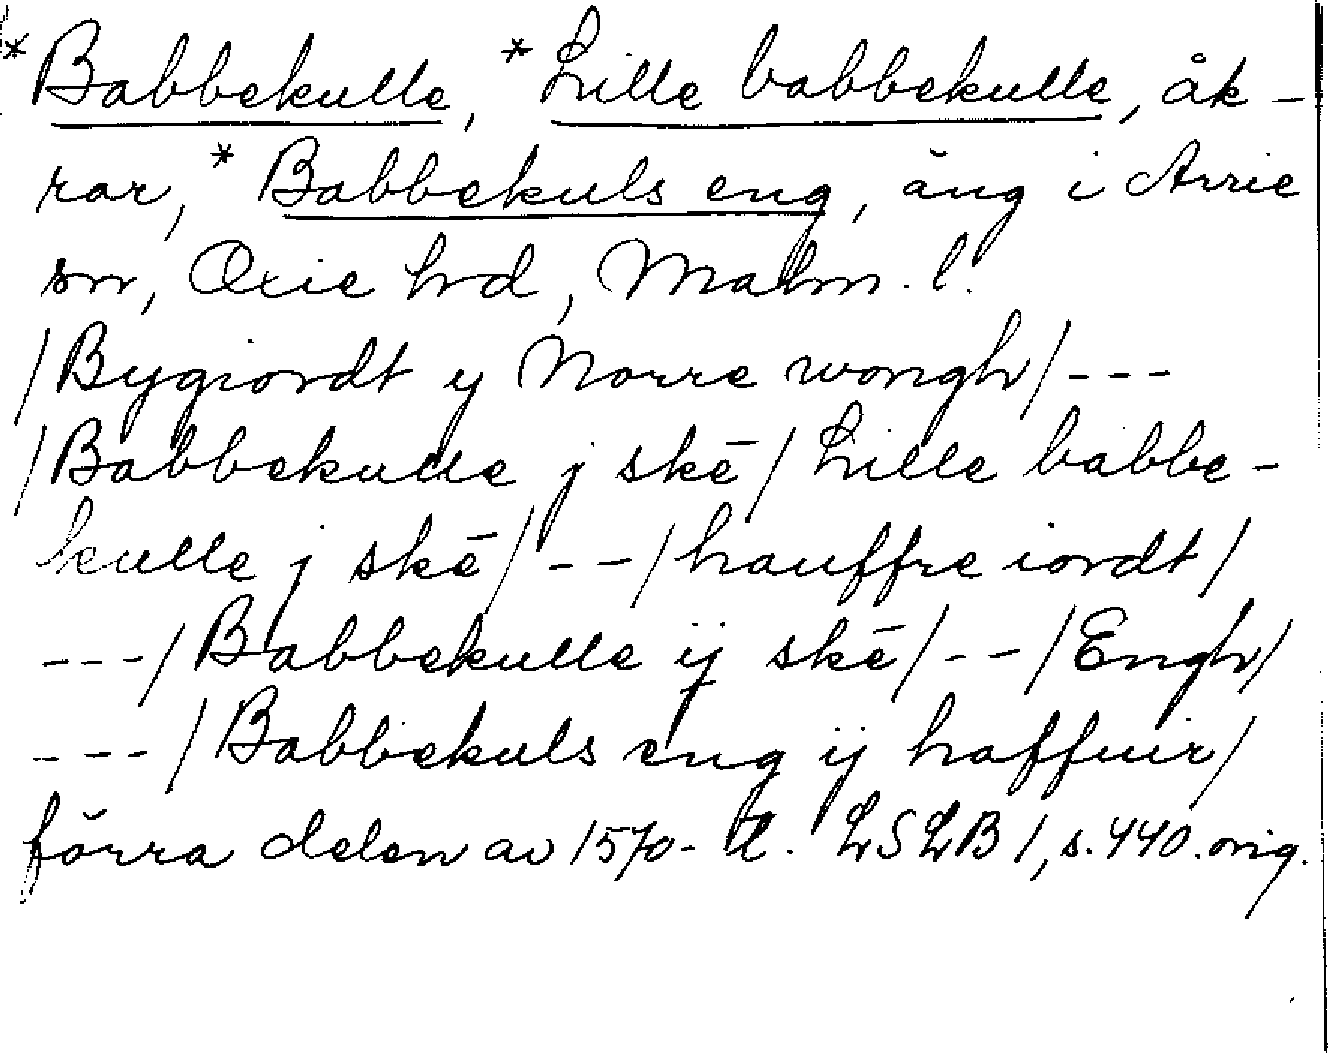 *Babbekulle, *Lille babbekulle, åk-
rar, *Babbekuls eng, äng i Arrie
sn, Oxie hrd, Malm. l.
/Bygiordt y Norre wongh/---
/Babbekulle j skē/Lille babbe-
kulle j skē/--/hauffre iordt/
---/Babbekulle ij skē/--/Engh/
---/Babbekuls eng ij haffuir/
förra delen av 1570-t. LSLB 1, s. 440. orig.